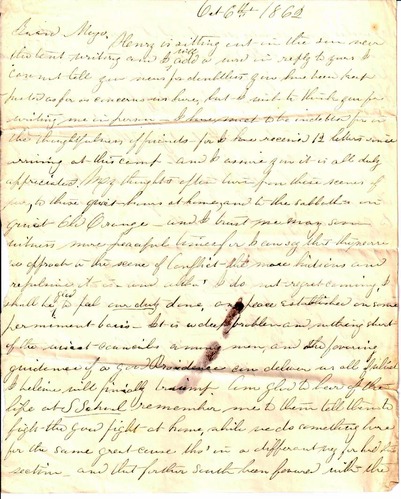 Oct 6th 1862
Henry is sitting out in the sun near
the tent writing and I will add a in reply to yours I
can not tell you news for doubtless you have been kept
posted as far as concerns us here, but I wish to thank you for
writing me in person - I have much to be indebted for in
the thoughtfulness of friends for I have received 12 letters since
arriving at this camp - and I assure you it is all duly
appreciated. My thoughts often turn from these scenes of
to those quiet hours at home, and to the sabbaths in
quiet Old Orange - and I trust we may soon
witness more peaceful times for I can say that the nearer
we approach to the scene of conflict the more hideous and
repulsive do I not regret coming, I
shall be glad to feel our duty done, and peace established on some
permanent basis - It is a deep problem and nothing short
of the wisest councils among men, and the favoring
guidance of a good Providence can deliver us all
I believe will finally triumph. I am glad to hear of the
life at S School remember me to them tell them to
fight the good fight at home, while we do something here
for the same great cause tho' in a different
section - and that farther South been favored with the